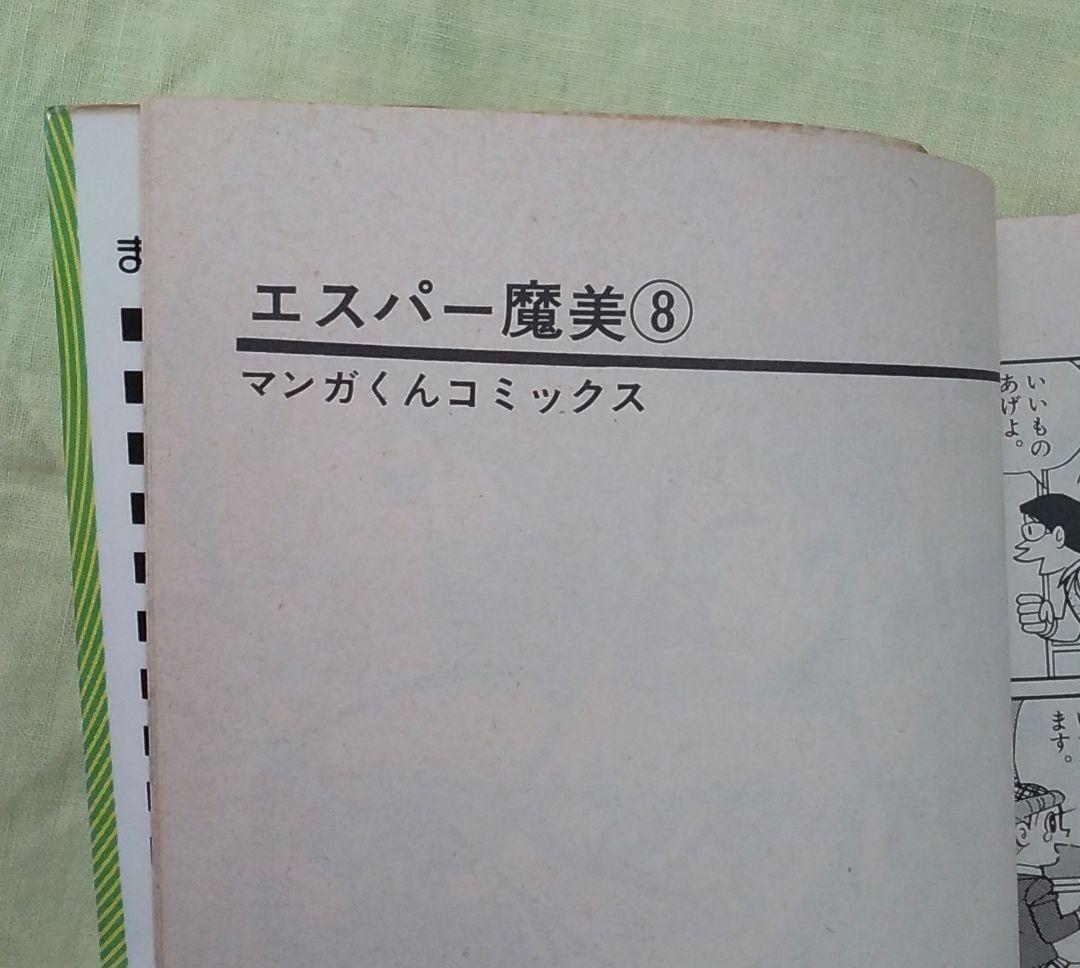 エスパー魔美⑧
マンガくんコミックス
いいもの
あげよ。
ます。
ま